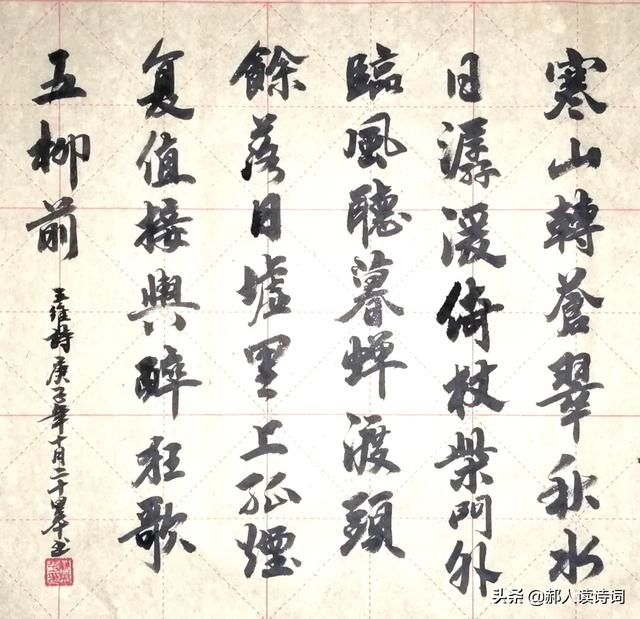 寒山轉蒼翠秋水
日潺湲倚杖柴門外
臨風聽暮蝉渡頭
餘落日墟里上孤煙
复值接輿醉狂歌
五柳前
王維詩庚子年十月二十书
头条 @郝人读诗词